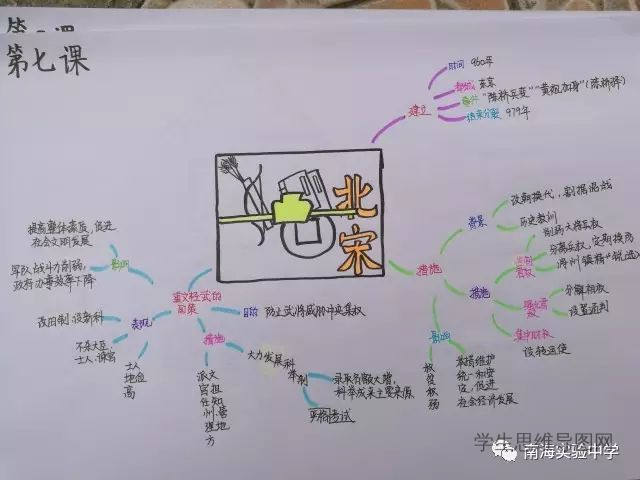 第七课
北宋
建立
时间 960年
都城 东京
事件 "陈桥兵变""黄袍加身"(陈桥驿)
结束分裂 979年
措施
背景
改朝换代,割据混战
历史教训
措施
削弱大将兵权
分离兵权,定期换防
分解相权
设置通判
集中财权
设转运使
影响
承措维护
统一和安
定,促进
社会经济发展
重文轻武的
政策
目的
防止武将威胁中央集权
措施
大力发展科
举制
录取名额大增,
科举成来主要来源
严格考试
派文
官担
任知
州,管
理地
方
表现
改旧制,设新科
不杀大臣,
士人,谏官
士人
地位
高
影响
提高整体素质,促进
社会文明发展
军队战斗力削弱,
政府办事效率下降
学生思维导图网
南海实验中学